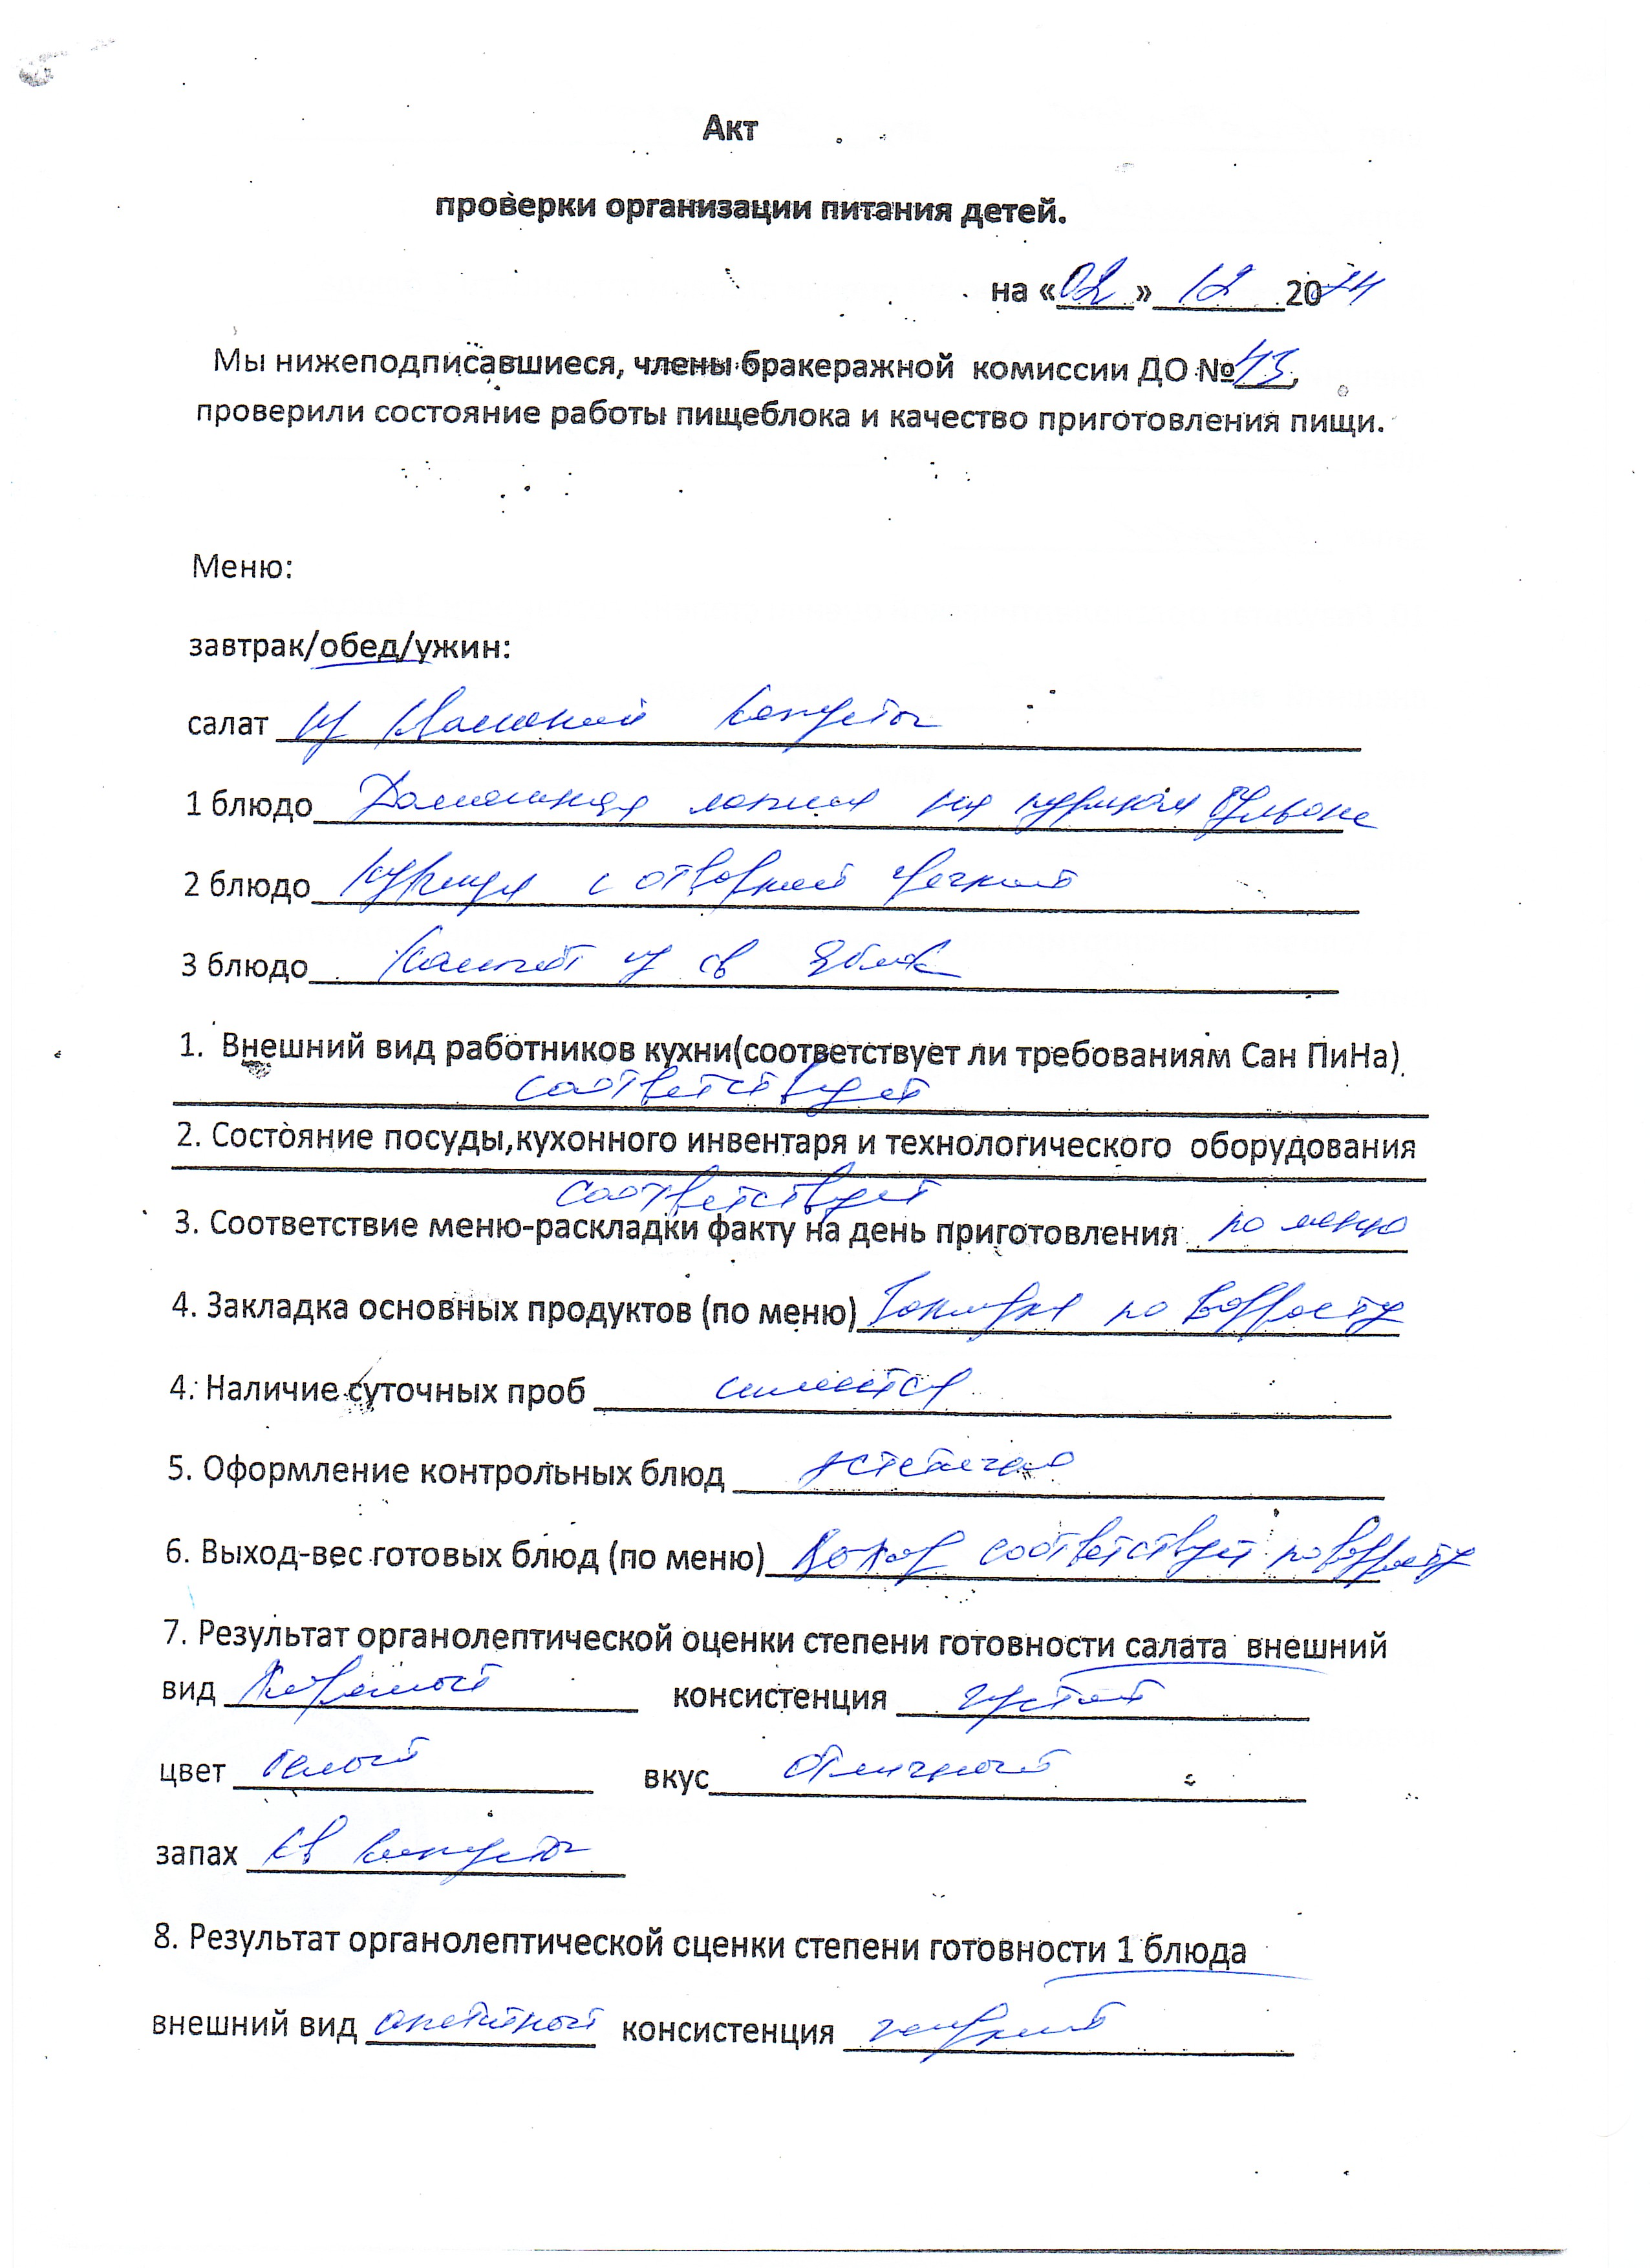 Акт
проверки организации питания детей.
на «02» 12 20
Мы нижеподписавшиеся, члены бракеражной комиссии ДО №43,
проверили состояние работы пищеблока и качество приготовления пищи.
Меню:
завтрак/обед/ужин:
салат из квашеной капусты
1 блюдо Домашняя лапша на курином бульоне
2 блюдо Курица с отварной гречкой
3 блюдо Компот из св яблок
1. Внешний вид работников кухни(соответствует ли требованиям Сан ПиНа)
соответствует
2. Состояние посуды,кухонного инвентаря и технологического оборудования
соответствует
3. Соответствие меню-раскладки факту на день приготовления по меню
4. Закладка основных продуктов (по меню) по возрасту
4. Наличие суточных проб имеется
5. Оформление контрольных блюд эстетично
6. Выход-вес готовых блюд (по меню) соответствует по возрасту
7. Результат органолептической оценки степени готовности салата внешний
вид консистенция густой
цвет белый вкус отличный
запах кв капусты
8. Результат органолептической оценки степени готовности 1 блюда
внешний вид аппетитный консистенция